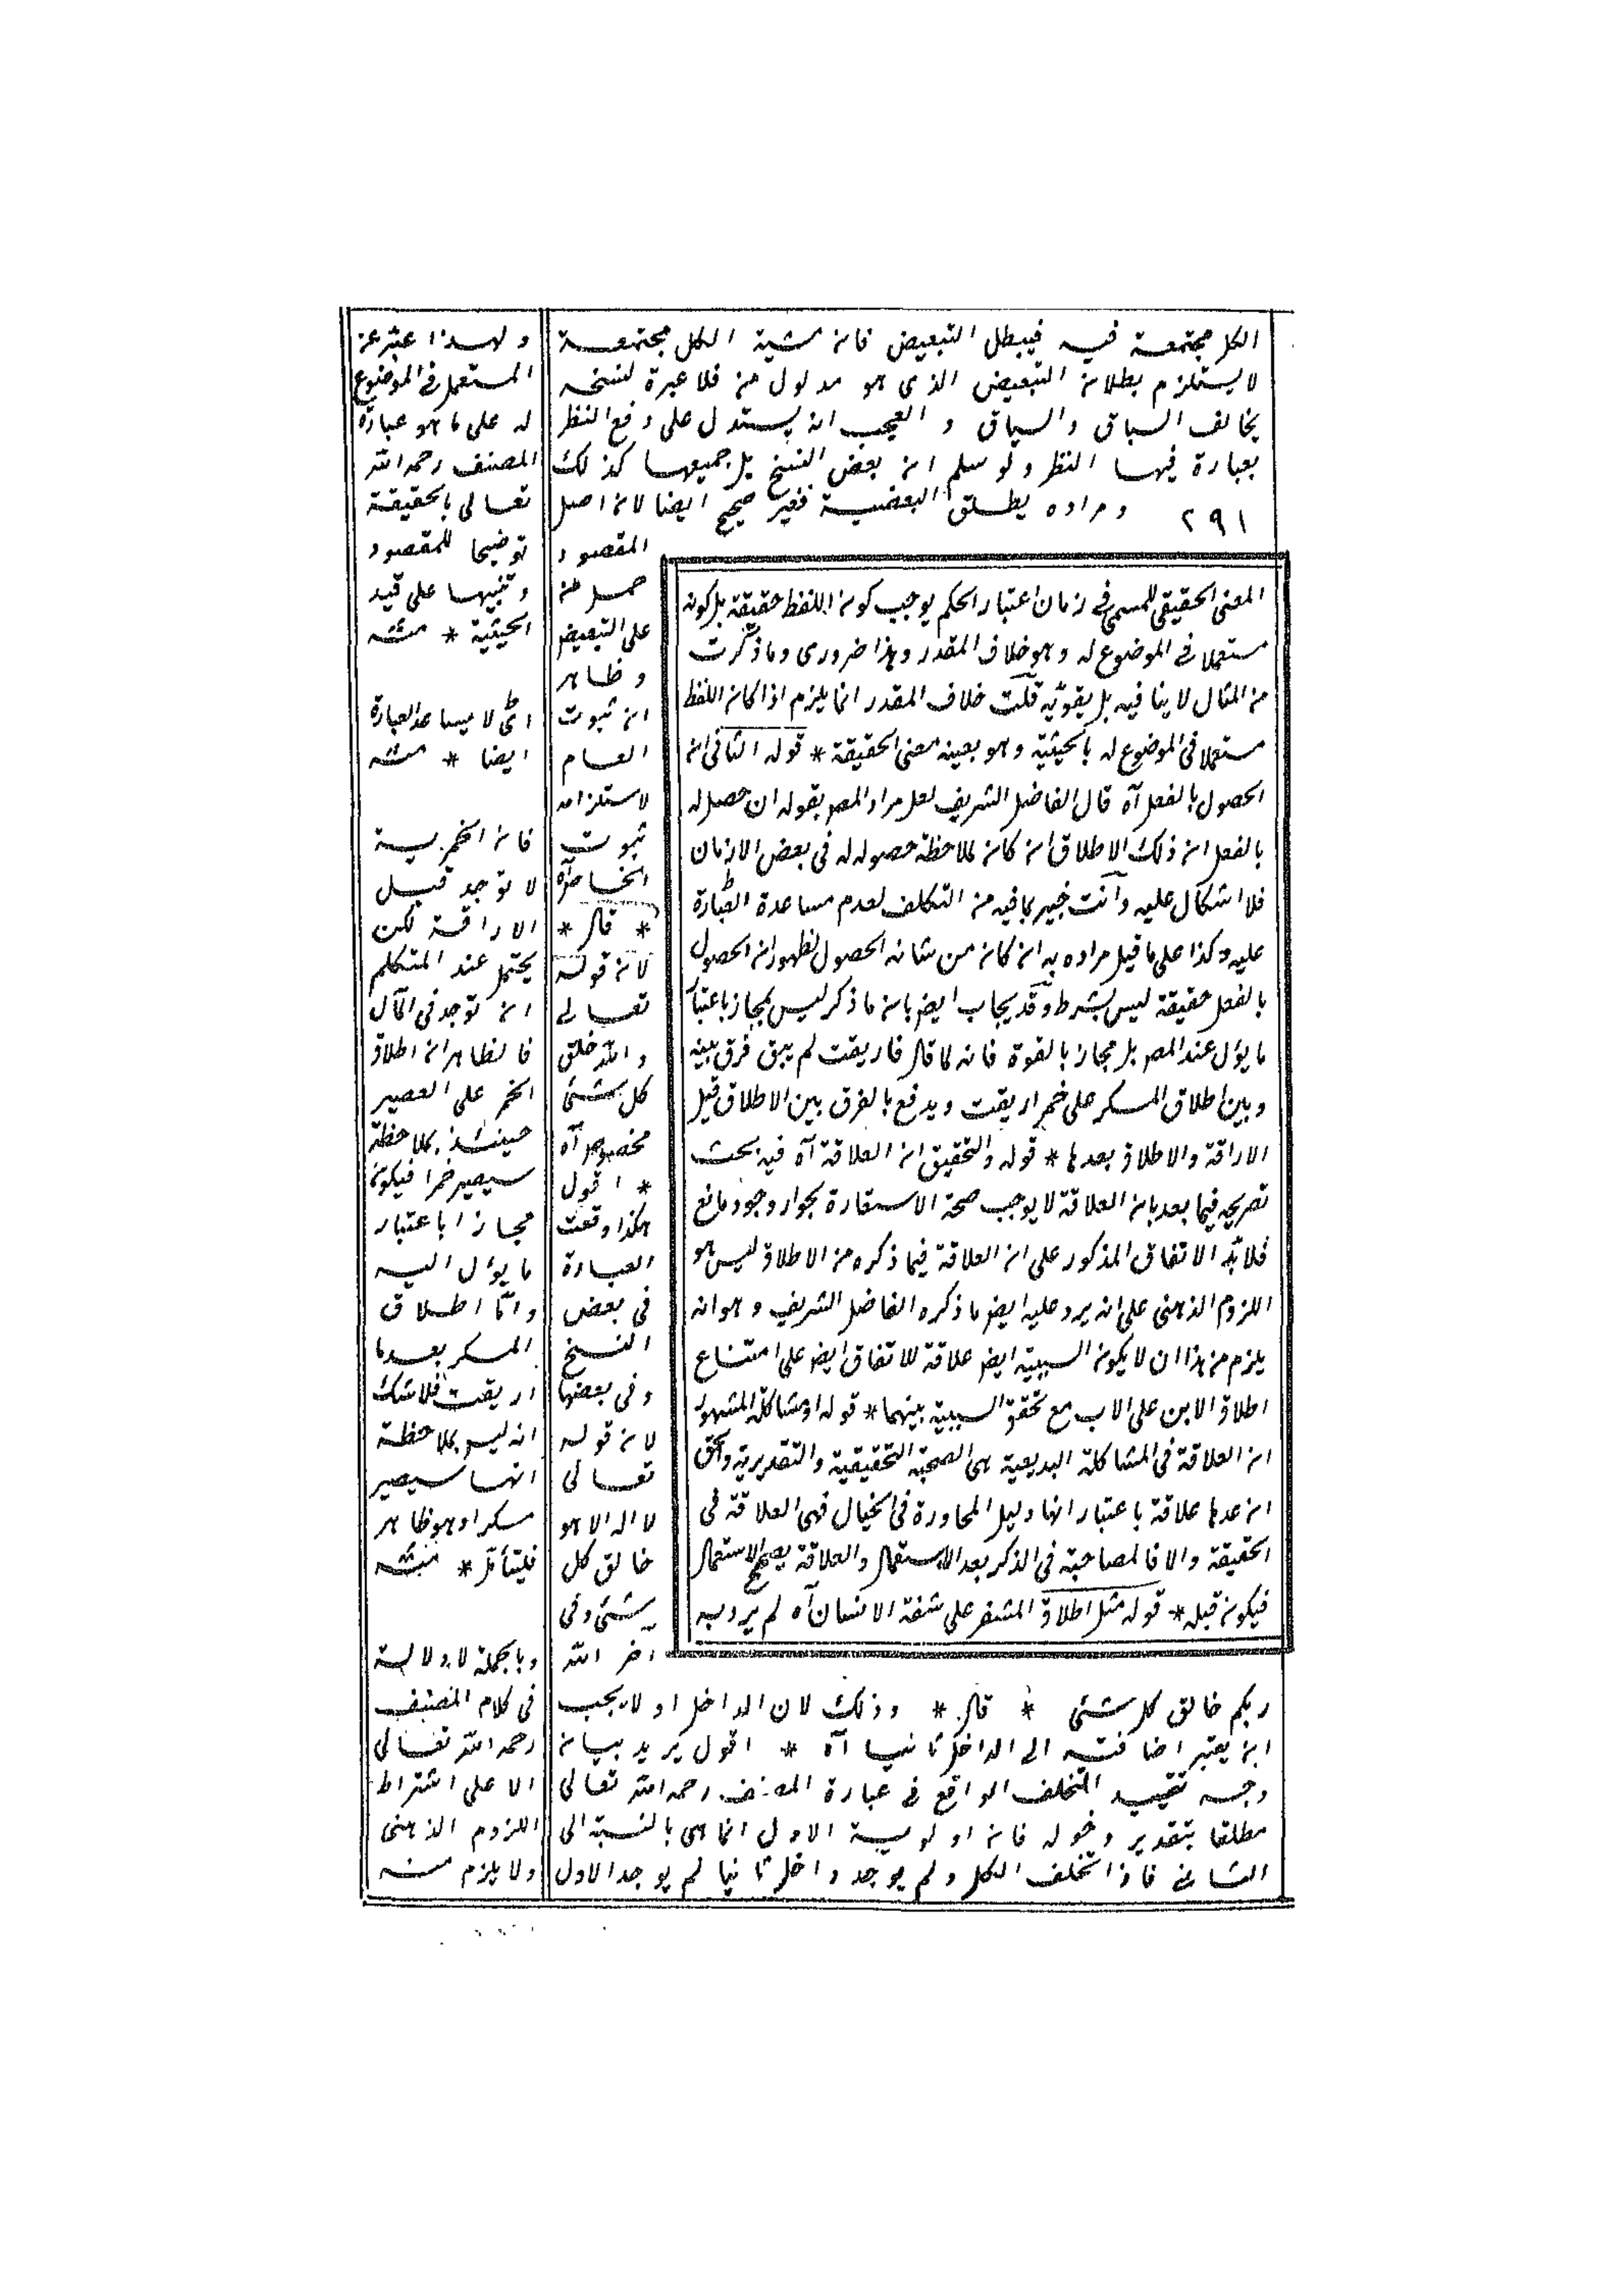 الكل مجتمعة فيه فيبطل التبعيض فان مشية الكل مجتمعة
لا يستلزم بطلان التبعيض الذى هو مدلول من فلا عبرة لنسخه
يخالف السباق والسياق و العجب انه يستدل على دفع النظر
بعبارة فيها النظر ولو سلم ان بعض النسخ بل جميعها كذلك
٢٩١ ومراده يطلق البعضية فغير صحيح ايضا لان اصل
المقصود
حمل من
على التبعيض
وظاهر
ان ثبوت
العام
لاستلزامه
ثبوت
الخاص آه
* قال *
لان قوله
تعالى
والله خلق
كل شئ
مخصوص آه
* اقول
هكذا وقعت
العبارة
فى بعض
النسخ
وفى بعضها
لان قوله
تعالى
لا اله الا هو
خالق كل
شئ وفى
آخر الله
ربكم خالق كل شئ * قال * وذلك لان الداخل اولا يجب
ان يعتبر اضافته الى الداخل ثانيا آه * اقول يريد بيان
وجه تقييد التخلف الواقع فى عبارة المصنف رحمه الله تعالى
مطلقا بتقدير دخوله فان اولوية الاول انما هى بالنسبة الى
الثانى فاذا تخلف الكل ولم يوجد داخل ثانيا لم يوجد الاول
المعنى الحقيقى للمسمى فى زمان اعتبار الحكم يوجب كون اللفظ حقيقة بل كونه
مستعملا فى الموضوع له وهو خلاف المقدر وهذا ضرورى وما ذكرت
من المثال لا ينافيه بل يقويه قلت خلاف المقدر انما يلزم اذا كان اللفظ
مستعملا فى الموضوع له بالحيثية وهو بعينه معنى الحقيقة * قوله الثانى ان
الحصول بالفعل آه قال الفاضل الشريف لعل مراد المص بقوله ان حصل له
بالفعل ان ذلك الاطلاق ان كان لملاحظة حصوله له فى بعض الازمان
فلا اشكال عليه وانت خبير بما فيه من التكلف لعدم مساعدة العبارة
عليه وكذا على ما قيل مراده به ان كان من شانه الحصول لظهور ان الحصول
بالفعل حقيقة ليس بشرط وقد يجاب ايض بان ما ذكر ليس بمجاز باعتبار
ما يؤل عند المص بل مجاز بالقوة فانه لما قال فاريقت لم يبق فرق بينه
وبين اطلاق المسكر على خمر اريقت ويدفع بالفرق بين الاطلاق قبل
الاراقة والاطلاق بعدها * قوله والتحقيق ان العلاقة آه فيه بحث
تصريحه فيما بعد بان العلاقة لا يوجب صحة الاستعارة لجواز وجود مانع
فلا يد الاتفاق المذكور على ان العلاقة فيما ذكره من الاطلاق ليس هو
اللزوم الذهنى على انه يرد عليه ايض ما ذكره الفاضل الشريف وهو انه
يلزم من هذا ان لا يكون السببية ايض علاقة للاتفاق ايض على امتناع
اطلاق الابن على الاب مع تحقق السببية بينهما * قوله او مشاكلة المشهور
ان العلاقة فى المشاكلة البديعية هى الصحبة التحقيقية والتقديرية والحق
ان عدها علاقة باعتبار انها دليل المجاورة فى الخيال فهى العلاقة فى
الحقيقة والا فالمصاحبة فى الذكر بعد الاستعمال والعلاقة يصحح الاستعمال
فيكون قبله * قوله مثل اطلاق المشفر على شفة الانسان آه لم يرد به
ولهذا عبر عن
المستعمل فى الموضوع
له على ما هو عبارة
المصنف رحمه الله
تعالى بالحقيقة
توضيحا للمقصود
وتنبيها على قيد
الحيثية * منه
اى لا يساعد العبارة
ايضا * منه
فان الخمرية
لا توجد قبل
الاراقة لكن
يحتمل عند المتكلم
ان توجد فى المآل
فالظاهر ان اطلاق
الخمر على العصير
حينئذ بملاحظة
سيصير خمرا فيكون
مجازا باعتبار
ما يؤل اليه
واما اطلاق
المسكر بعد ما
اريقت فلا شك
انه ليس بملاحظة
انها سيصير
مسكرا وهو ظاهر
فليتأمل * منه
وبالجملة لا دلالة
فى كلام المصنف
رحمه الله تعالى
الا على اشتراط
اللزوم الذهنى
ولا يلزم منه